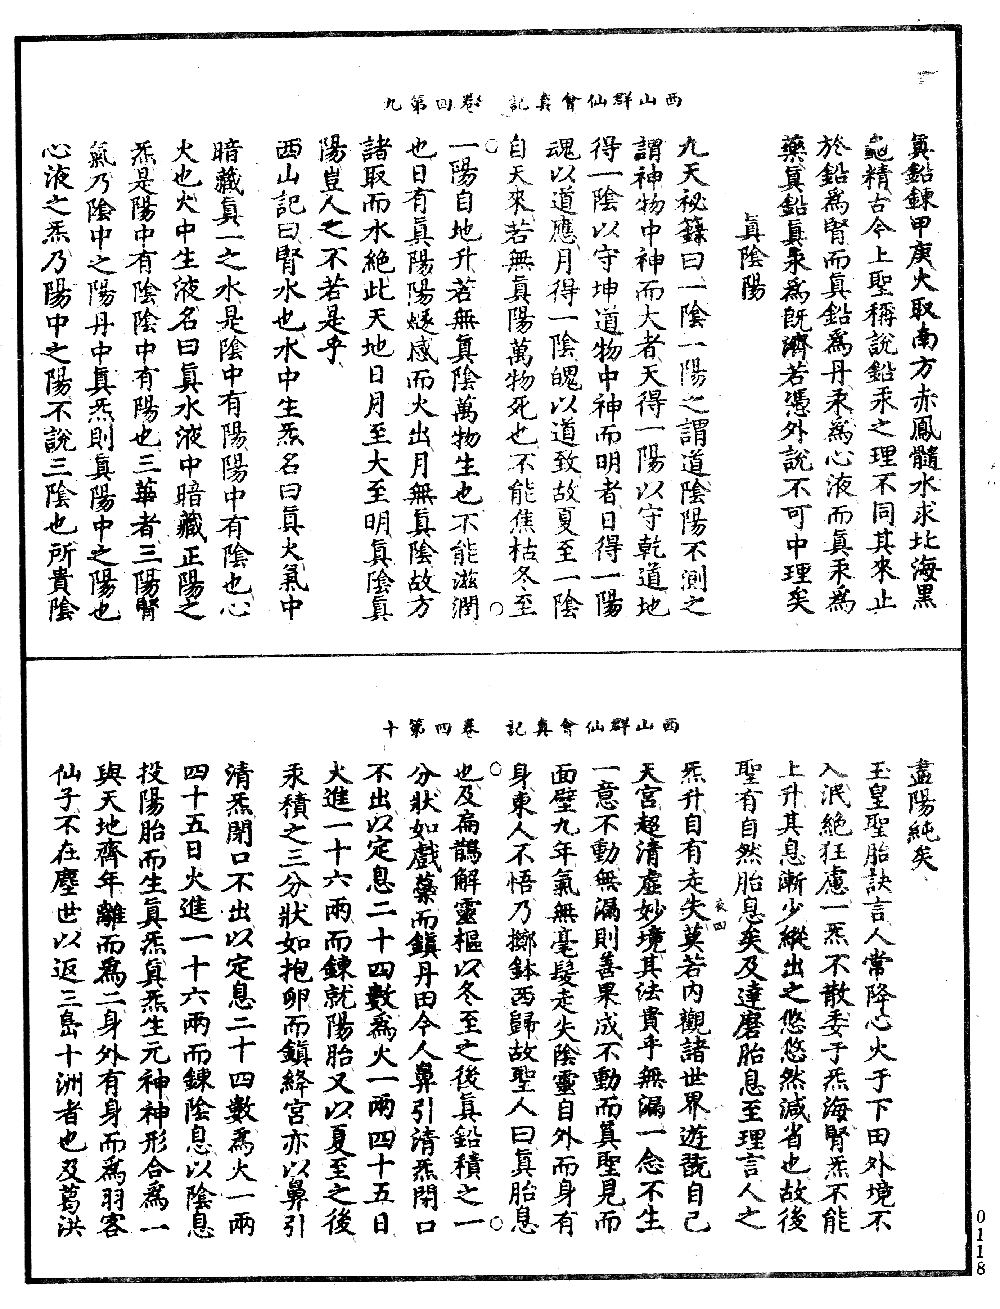 西山群仙會真記　卷四第九
真鉛鍊甲庚火取南方赤鳳髓水求北海黑
龜精古今上聖稱說鉛汞之理不同其來止
於鉛為腎而真鉛為丹汞為心液而真汞為
藥真鉛真汞為既濟若憑外說不可中理矣
真陰陽
九天秘籙曰一陰一陽之謂道陰陽不測之
謂神物中神而大者天得一陽以守乾道地
得一陰以守坤道物中神而明者日得一陽
魂以道應月得一陰魄以道致故夏至一陰
自天來若無真陽萬物死也不能焦枯冬至
一陽自地升若無真陰萬物生也不能滋潤
也日有真陽陽燧感而火出月無真陰故方
諸取而水絕此天地日月至大至明真陰真
陽豈人之不若是乎
西山記曰腎水也水中生炁名曰真火氣中
暗藏真一之水是陰中有陽陽中有陰也心
火也火中生液名曰真水液中暗藏正陽之
炁是陽中有陰陰中有陽也三華者三陽腎
氣乃陰中之陽丹中真炁則真陽中之陽也
心液之炁乃陽中之陽不說三陰也所貴陰
西山群仙會真記　卷四第十
盡陽純矣
玉皇聖胎訣言人常降心火于下田外境不
入泯絕狂慮一炁不散委于炁海腎炁不能
上升其息漸少縱出之悠悠然減省也故後
聖有自然胎息矣及達磨胎息至理言人之
炁升自有走失莫若內觀諸世界遊翫自己
天宮超清虛妙境其法貴乎無漏一念不生
一意不動無漏則善果成不動而真聖見而
面壁九年氣無毫髮走失陰靈自外而身有
身東人不悟乃擲鉢西歸故聖人曰真胎息
也及扁鵲解靈樞以冬至之後真鉛積之一
分狀如戲藥而鎮丹田令人鼻引清炁閉口
不出以定息二十四數為火一兩四十五日
火進一十六兩而鍊就陽胎又以夏至之後
汞積之三分狀如抱卵而鎮絳宮亦以鼻引
清炁閉口不出以定息二十四數為火一兩
四十五日火進一十六兩而鍊陰息以陰息
投陽胎而生真炁真炁生元神神形合為一
與天地齊年離而為二身外有身而為羽客
仙子不在塵世以返三島十洲者也及葛洪
0118